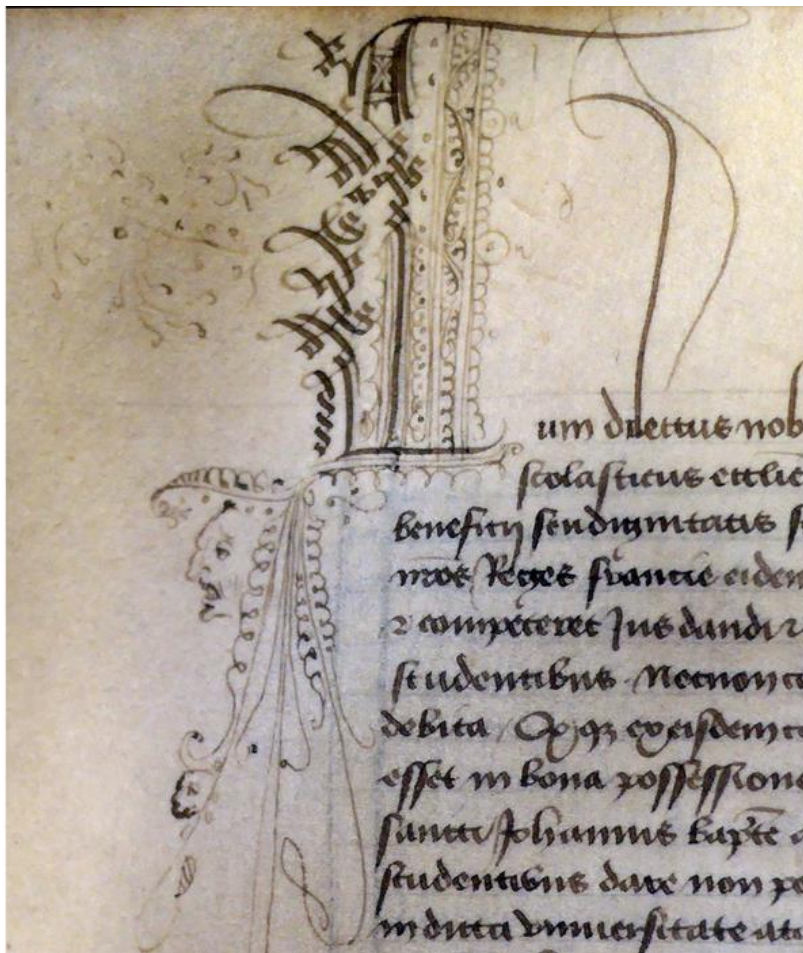 um dilectus nob
scolasticus ecclie
beneficij seu dignitatis
nros Reges francie eidem
competeret Jus dandi
studentibus Necnon
debita exeisdem
esset in bona possessione
sancti Johannis bapte
studentibus dare non po
in dicta vniuersitate